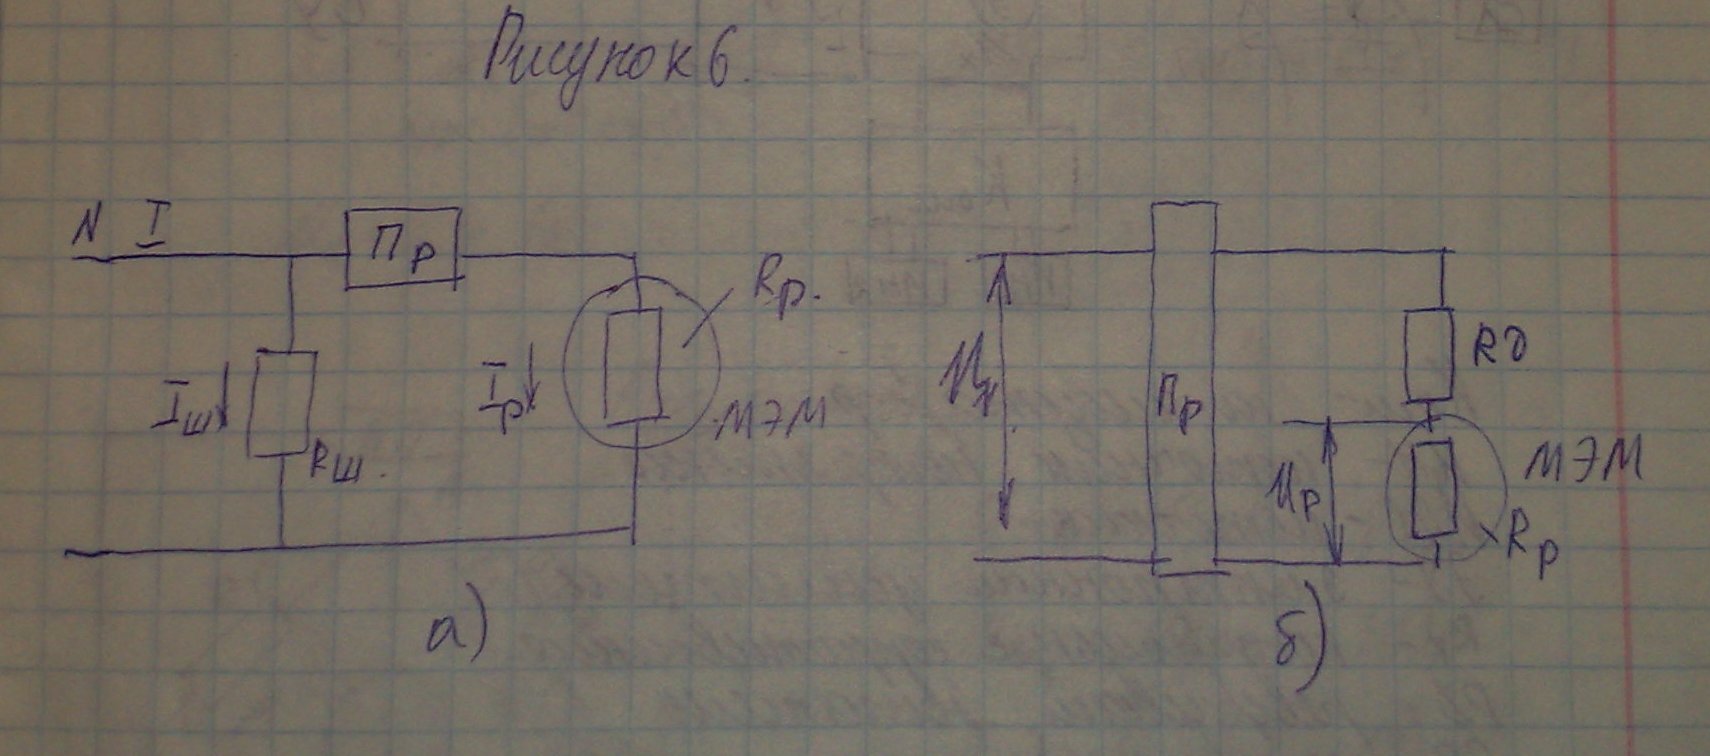 Рисунок 6.
N I
Пр
Rр.
Iш
Rш.
Iр
МЭМ
а)
Uх
Пр
Rд
Uр
МЭМ
Rр
б)